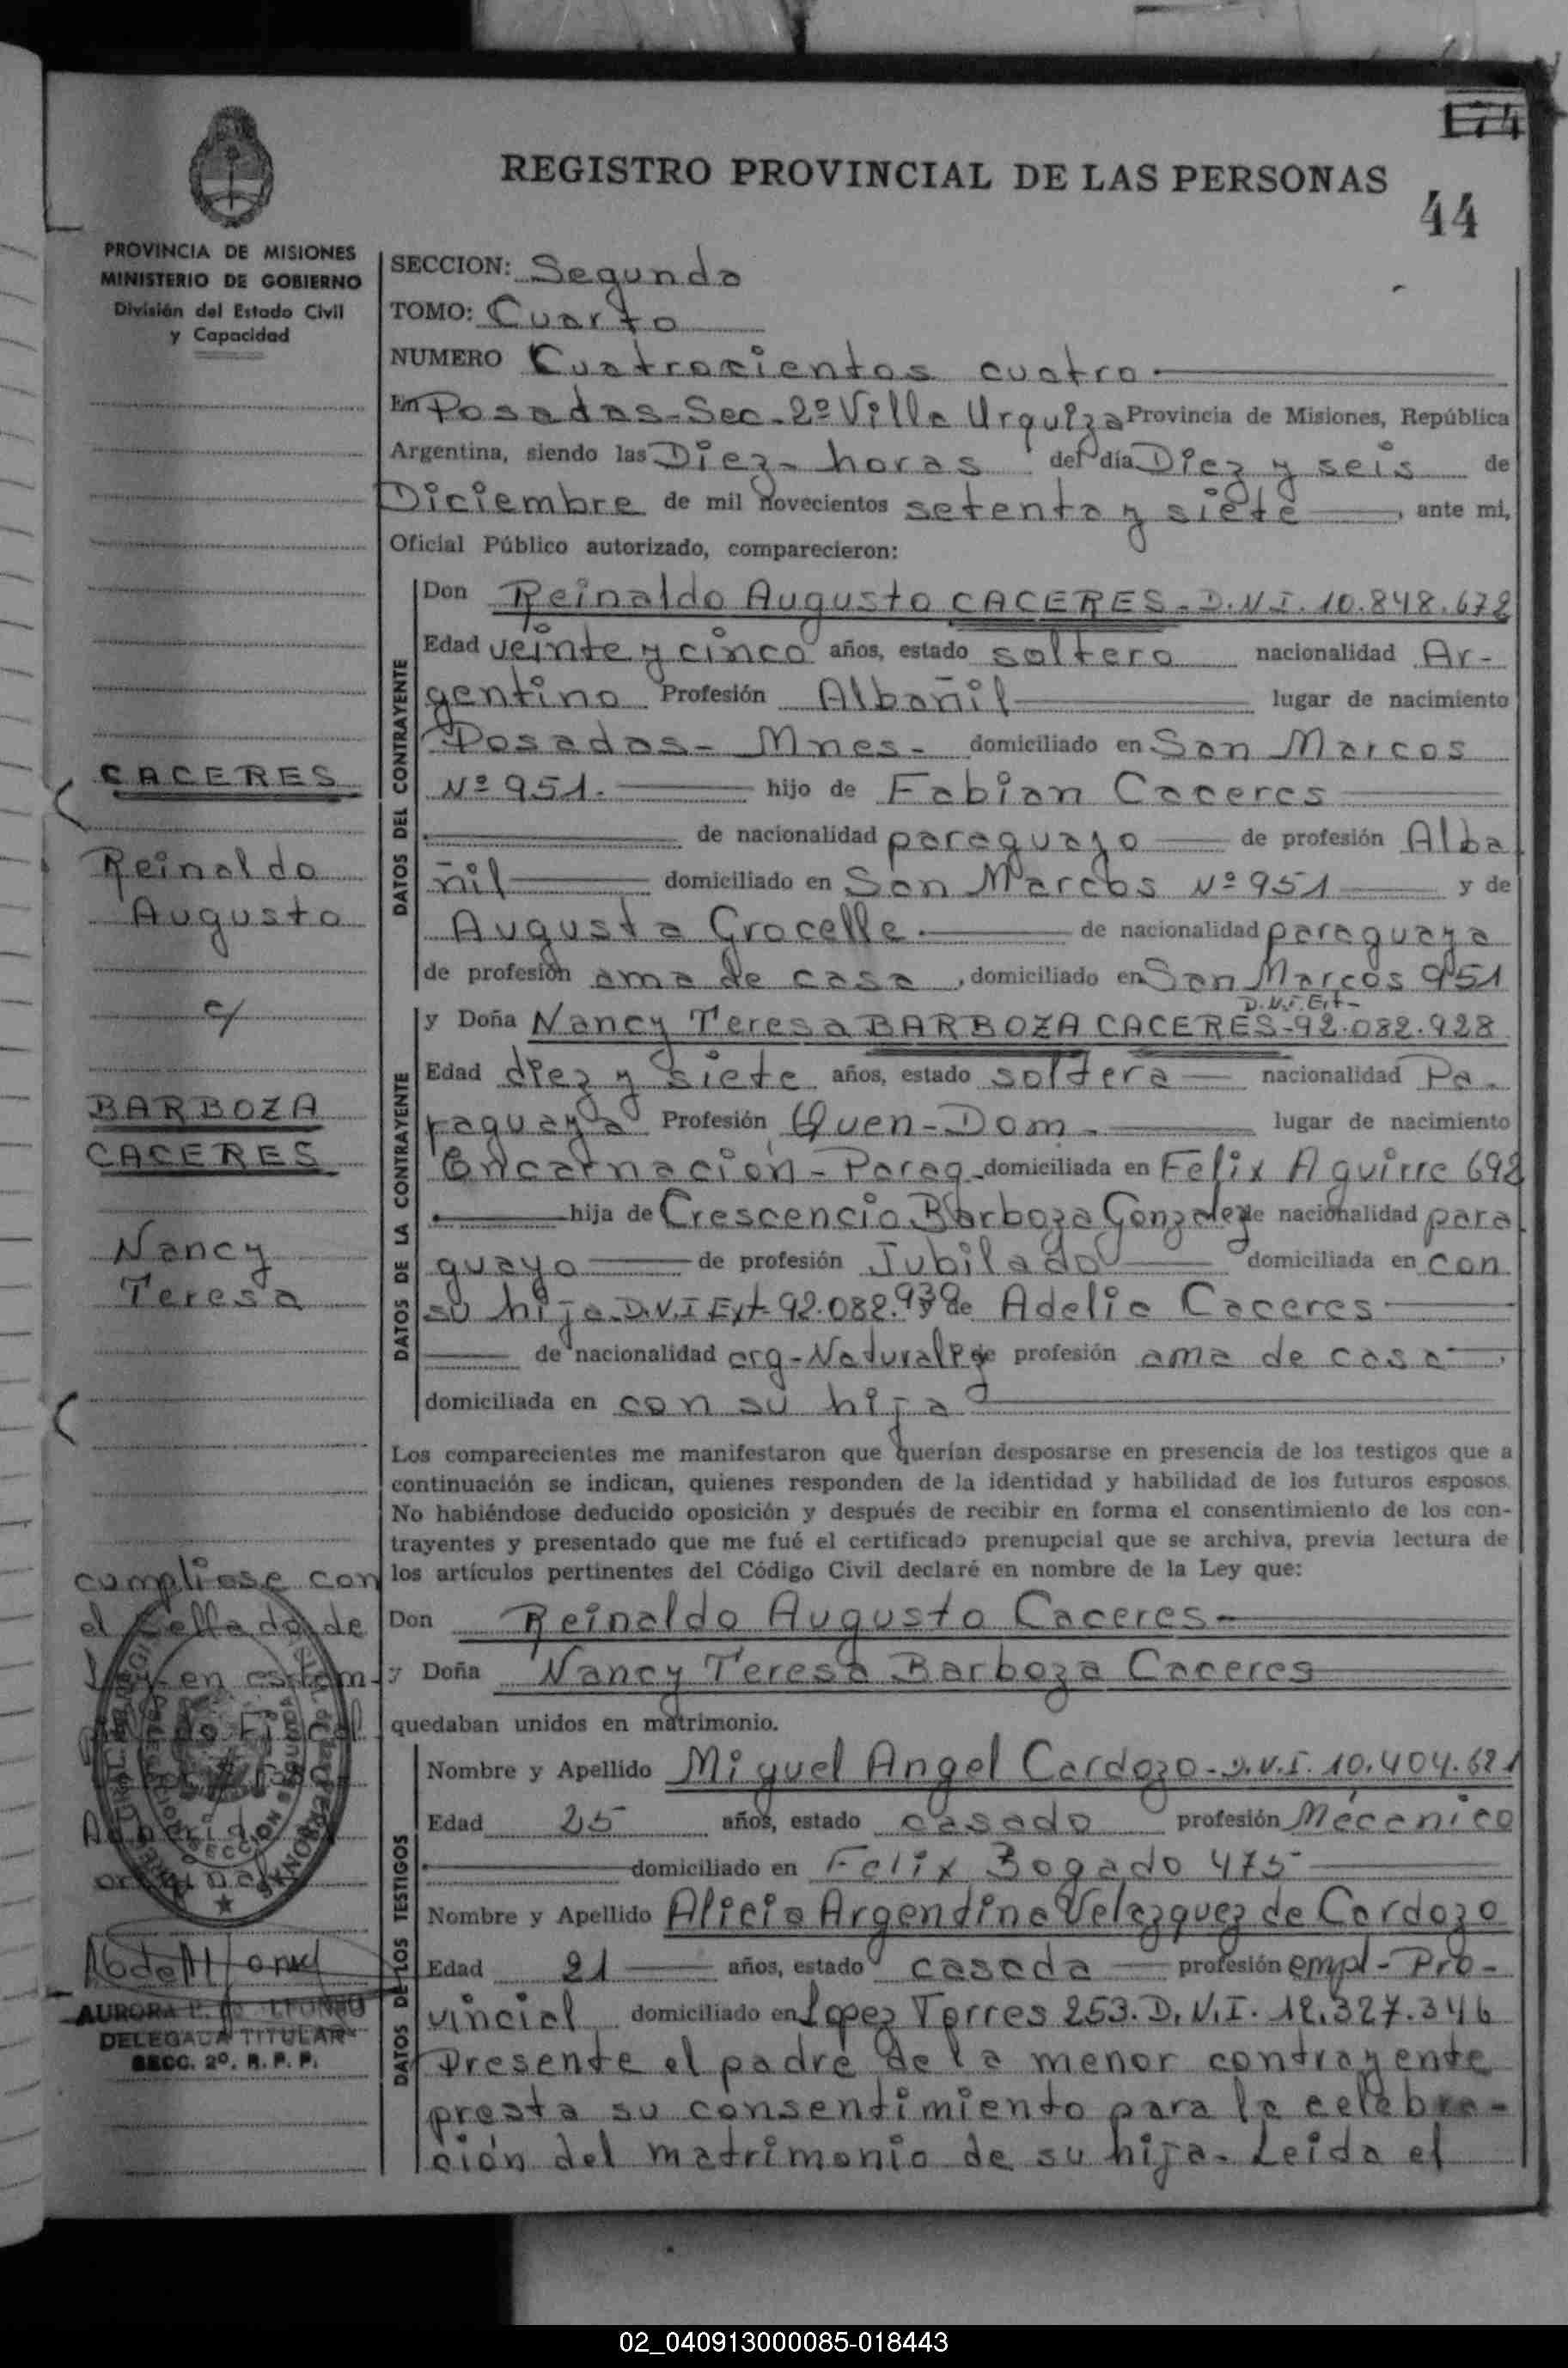 174
REGISTRO PROVINCIAL DE LAS PERSONAS
44
PROVINCIA DE MISIONES
MINISTERIO DE GOBIERNO
División del Estado Civil
y Capacidad
SECCION: Segunda
TOMO: Cuarto
NUMERO Cuatrocientos cuatro
En Posadas-Sec-2º Villa Urquiza Provincia de Misiones, República
Argentina, siendo las Diez- horas del día Diez y seis de
Diciembre de mil novecientos setenta y siete, ante mi,
Oficial Público autorizado, comparecieron:
DATOS DEL CONTRAYENTE
Don Reinaldo Augusto CACERES- D.N.I. 10.848.672
Edad veinte y cinco años, estado soltero nacionalidad Ar-
gentino Profesión Albañil lugar de nacimiento
Posadas- Mnes- domiciliado en San Marcos
Nº 951. hijo de Fabian Caceres
de nacionalidad paraguayo de profesión Alba
ñil domiciliado en San Marcos Nº 951 y de
Augusta Grocelle de nacionalidad paraguaya
de profesión ama de casa, domiciliado en San Marcos 951
DATOS DE LA CONTRAYENTE
D.N.I. Ext-
y Doña Nancy Teresa BARBOZA CACERES-92.082.928
Edad diez y siete años, estado soltera nacionalidad Pa-
raguaya Profesión Quen-Dom- lugar de nacimiento
Encarnación-Parag- domiciliada en Felix Aguirre 692
hija de Crescencio Barboza Gonzalez de nacionalidad para
guayo de profesión Jubilado domiciliada en con
su hija-D.N.I Ext-92.082.939 y de Adelia Caceres
de nacionalidad arg-Naturaliz de profesión ama de casa,
domiciliada en con su hija
Los comparecientes me manifestaron que querían desposarse en presencia de los testigos que a
continuación se indican, quienes responden de la identidad y habilidad de los futuros esposos.
No habiéndose deducido oposición y después de recibir en forma el consentimiento de los con-
trayentes y presentado que me fué el certificado prenupcial que se archiva, previa lectura de
los artículos pertinentes del Código Civil declaré en nombre de la Ley que:
Don Reinaldo Augusto Caceres
y Doña Nancy Teresa Barboza Caceres
quedaban unidos en matrimonio.
DATOS DE LOS TESTIGOS
Nombre y Apellido Miguel Angel Cardozo-D.N.I. 10.404.621
Edad 25 años, estado casado profesión Mecanico
domiciliado en Felix Bogado 475
Nombre y Apellido Alicia Argentina Velazquez de Cardozo
Edad 21 años, estado casada profesión empl-Pro-
vincial domiciliado en Lopez Torres 253. D.N.I. 12.327.346
Presente el padre de la menor contrayente
presta su consentimiento para la celebra-
ción del matrimonio de su hija- Leida el
CACERES
Reinaldo
Augusto
c/
BARBOZA
CACERES
Nancy
Teresa
cumpliose con
el sellado de
Ley en estam-
AURORA
DELEGADA TITULAR
SECC. 2º. R. P. P.
02_040913000085-018443